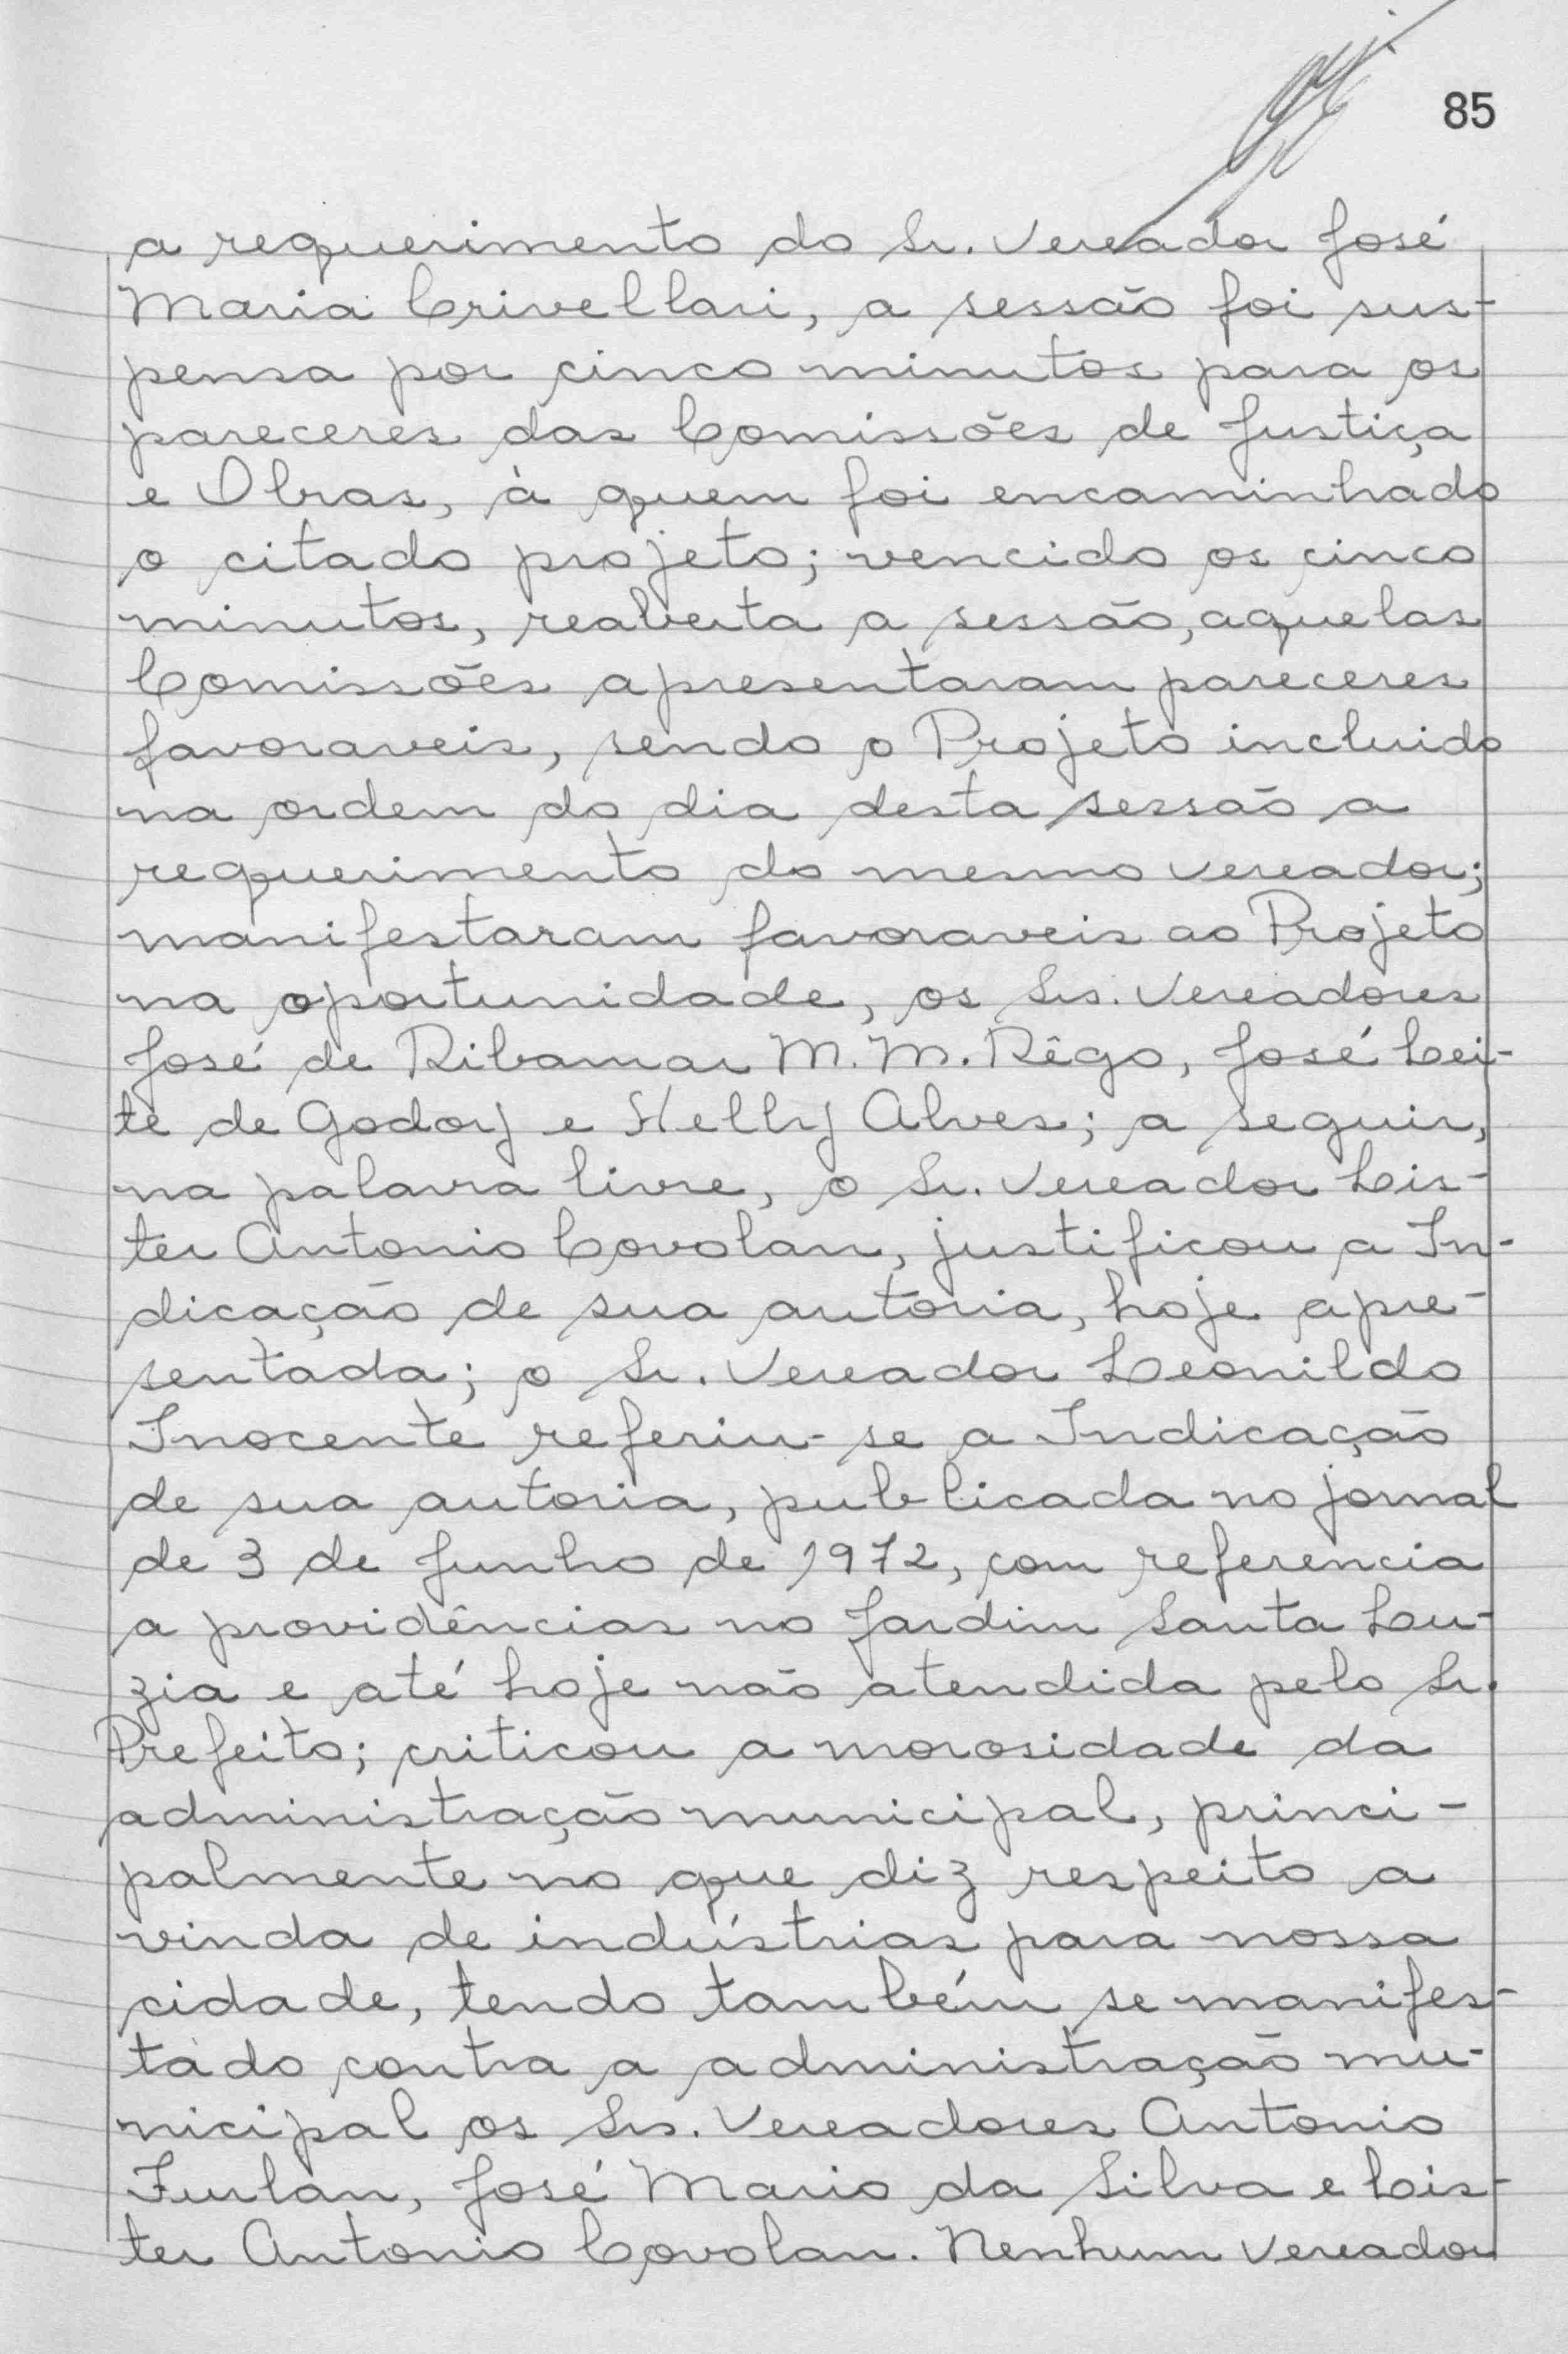 85
a requerimento do Sr. Vereador José
Maria Crivellari, a sessão foi sus-
pensa por cinco minutos para os
pareceres das Comissões de Justiça
e Obras, à quem foi encaminhado
o citado projeto; vencido os cinco
minutos, reaberta a sessão, aquelas
Comissões apresentaram pareceres
favoraveis, sendo o Projeto incluido
na ordem do dia desta sessão a
requerimento do mesmo vereador;
manifestaram favoraveis ao Projeto
na oportunidade, os Srs. Vereadores
José de Ribamar M. M. Rêgo, José Lei-
te de Godoy e Helly Alves; a seguir,
na palavra livre, o Sr. Vereador Lis-
ter Antonio Covolan, justificou a In-
dicação de sua autoria, hoje apre-
sentada; o Sr. Vereador Leonildo
Inocente referiu-se a Indicação
de sua autoria, publicada no jornal
de 3 de Junho de 1972, com referencia
a providências no Jardim Santa Lu-
zia e até hoje não atendida pelo Sr.
Prefeito; criticou a morosidade da
administração municipal, princi-
palmente no que diz respeito a
vinda de indústrias para nossa
cidade, tendo também se manifes-
tado contra a administração mu-
nicipal os Srs. Vereadores Antonio
Furlan, José Mario da Silva e Lis-
ter Antonio Covolan. Nenhum Vereador